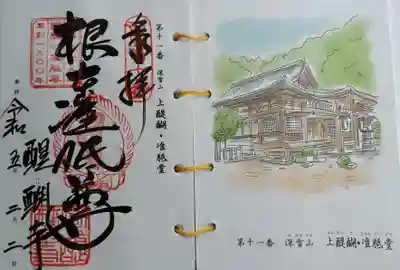 奉拝
第十一番 深雪山 上醍醐・准胝堂
根本准胝尊
草創一三〇〇年
醍醐寺
令和五 二 二
第十一番 深雪山 上醍醐・准胝堂